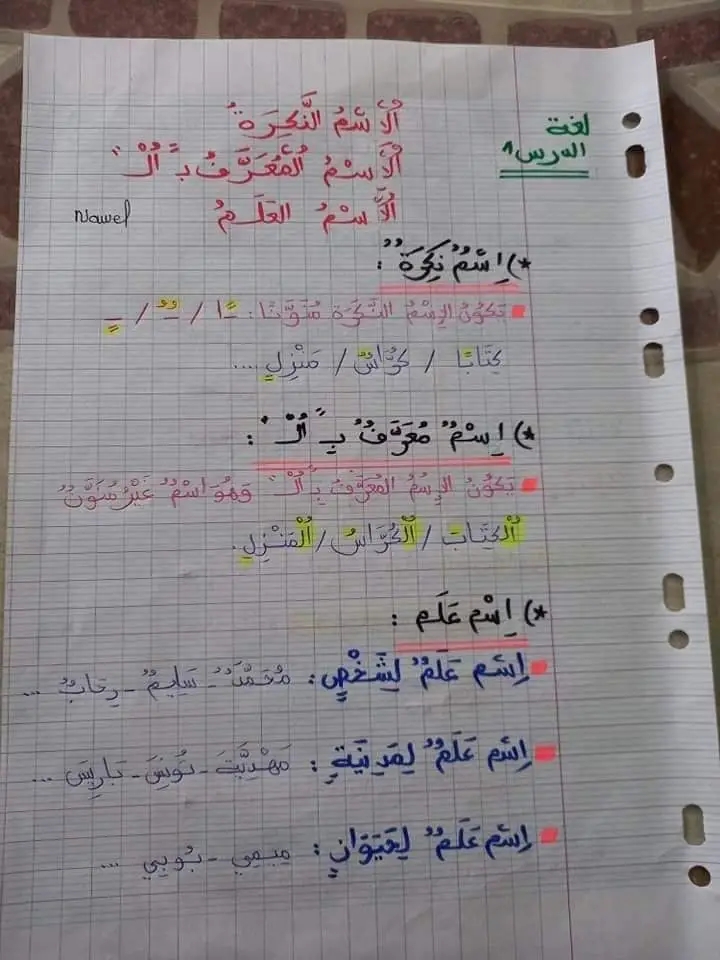 لغة
الدرس 1
اَلْاِسْمُ النَّكِرَةُ
اَلْاِسْمُ المُعَرَّفُ بِـ "اَلْـ"
اَلْاِسْمُ العَلَمُ
Nawel
*) اِسْمٌ نَكِرَةٌ :
يَكُونُ الاِسْمُ النَّكِرَة مُنَوَّنًا: ـًا / ـٌ / ـٍ
كِتَابًا / كُرَّاسٌ / مَنْزِلٍ ....
*) اِسْمٌ مُعَرَّفٌ بِـ "اَلْـ" :
يَكُونُ الاِسْمُ المُعَرَّفُ بِـ "اَلْـ" وَهُوَ اسْمٌ غَيْرُ مُنَوَّنٌ
اَلْكِتَابَ / اَلْكُرَّاسُ / اَلْمَنْزِلِ.
*) اِسْم عَلَم :
اِسْم عَلَمٌ لِشَخْصٍ : مُحَمَّدٌ - سَلِيمٌ - رِحَابُ ...
اِسْم عَلَمٌ لِمَدِينَةٍ : مَهْدِيَّةَ - تُونِسَ - بَارِيسَ ...
اِسْم عَلَمٌ لِحَيَوَانٍ : مِيمِي - بُوبِي ...